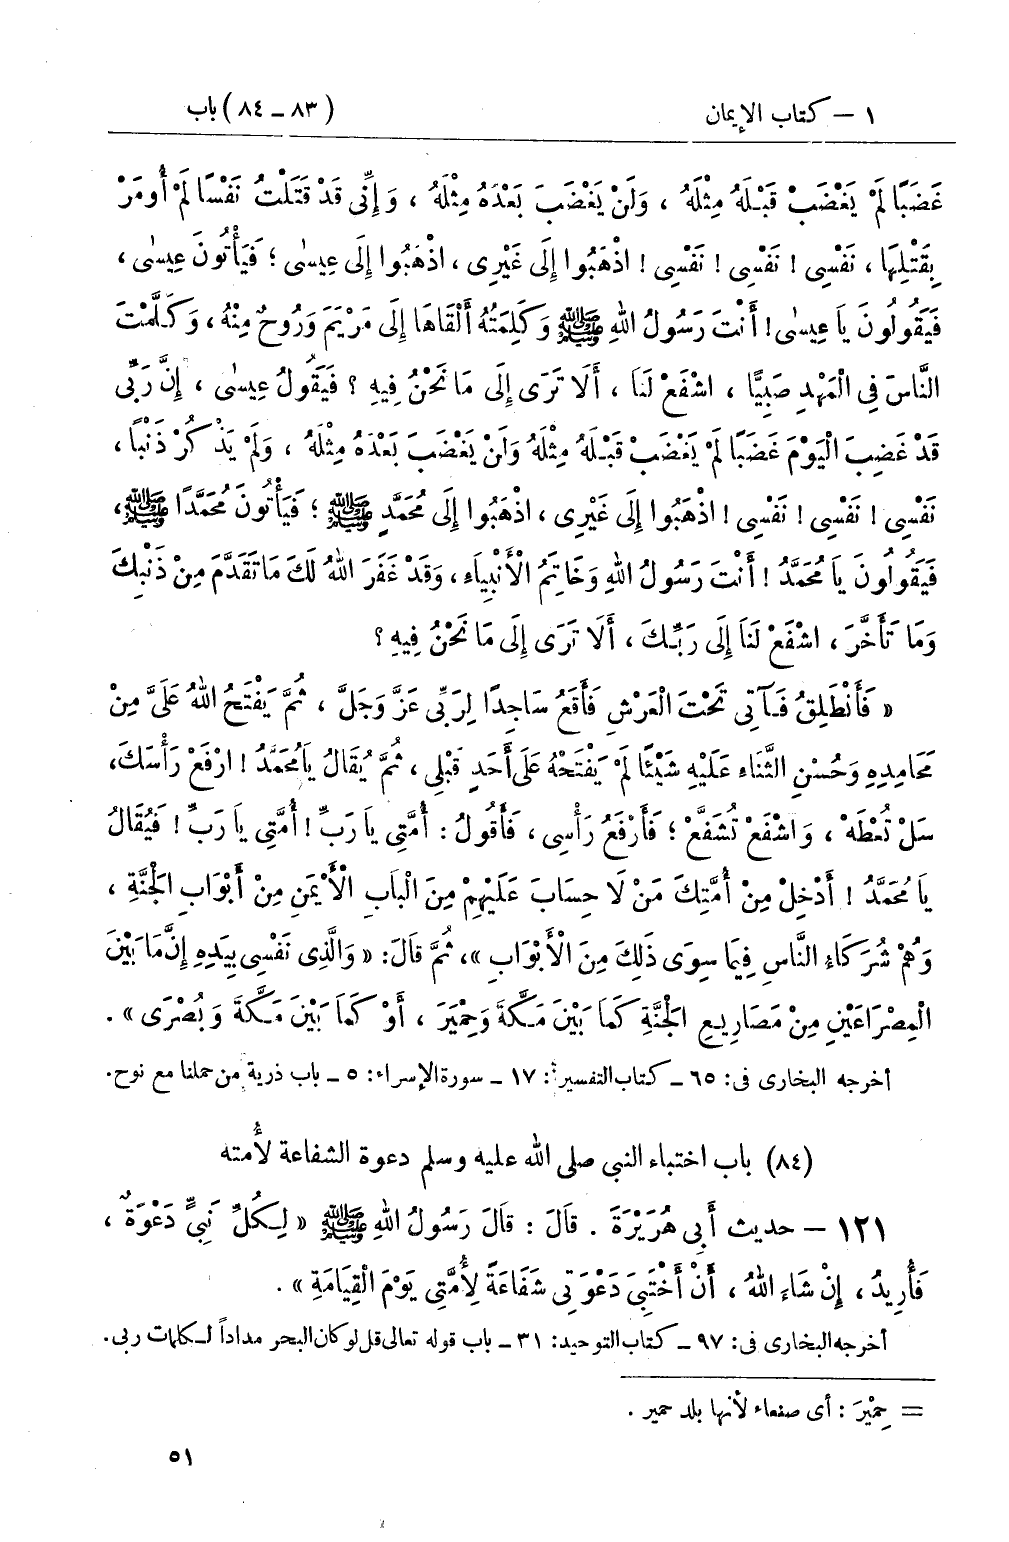 ١ – كتاب الإيمان (٨٣ – ٨٤) باب
غَضَبًا لَمْ يَغْضَبْ قَبْلَهُ مِثْلَهُ ، وَلَنْ يَغْضَبَ بَعْدَهُ مِثْلَهُ ، وَإِنِّى قَدْ قَتَلْتُ نَفْسًا لَمْ أُومَرْ
بِقَتْلِهَا ، نَفْسِى ! نَفْسِى ! نَفْسِى ! اذْهَبُوا إِلَى غَيْرِى ، اذْهَبُوا إِلَى عِيسٰى ؛ فَيَأْتُونَ عِيسٰى ،
فَيَقُولُونَ يَا عِيسٰى ! أَنْتَ رَسُولُ اللهِ ﷺ وَكَلِمَتُهُ أَلْقَاهَا إِلَى مَرْيَمَ وَرُوحٌ مِنْهُ ، وَكَلَّمْتَ
النَّاسَ فِى الْمَهْدِ صَبِيًّا ، اشْفَعْ لَنَا ، أَلَا تَرَى إِلَى مَا نَحْنُ فِيهِ ؟ فَيَقُولُ عِيسٰى ، إِنَّ رَبِّى
قَدْ غَضِبَ الْيَوْمَ غَضَبًا لَمْ يَغْضَبْ قَبْلَهُ مِثْلَهُ وَلَنْ يَغْضَبَ بَعْدَهُ مِثْلَهُ ، وَلَمْ يَذْكُرْ ذَنْبًا ،
نَفْسِى ! نَفْسِى ! نَفْسِى ! اذْهَبُوا إِلَى غَيْرِى ، اذْهَبُوا إِلَى مُحَمَّدٍ ﷺ ؛ فَيَأْتُونَ مُحَمَّدًا ﷺ ،
فَيَقُولُونَ يَا مُحَمَّدُ ! أَنْتَ رَسُولُ اللهِ وَخَاتِمُ الْأَنْبِيَاءِ ، وَقَدْ غَفَرَ اللهُ لَكَ مَا تَقَدَّمَ مِنْ ذَنْبِكَ
وَمَا تَأَخَّرَ ، اشْفَعْ لَنَا إِلَى رَبِّكَ ، أَلَا تَرَى إِلَى مَا نَحْنُ فِيهِ ؟
« فَأَنْطَلِقُ فَآتِى تَحْتَ الْعَرْشِ فَأَقَعُ سَاجِدًا لِرَبِّى عَزَّ وَجَلَّ ، ثُمَّ يَفْتَحُ اللهُ عَلَىَّ مِنْ
مَحَامِدِهِ وَحُسْنِ الثَّنَاءِ عَلَيْهِ شَيْئًا لَمْ يَفْتَحْهُ عَلَى أَحَدٍ قَبْلِى ، ثُمَّ يُقَالُ يَا مُحَمَّدُ ! ارْفَعْ رَأْسَكَ ،
سَلْ تُعْطَهْ ، وَاشْفَعْ تُشَفَّعْ ؛ فَأَرْفَعُ رَأْسِى ، فَأَقُولُ : أُمَّتِى يَا رَبِّ ! أُمَّتِى يَا رَبِّ ! فَيُقَالُ
يَا مُحَمَّدُ ! أَدْخِلْ مِنْ أُمَّتِكَ مَنْ لَا حِسَابَ عَلَيْهِمْ مِنَ الْبَابِ الْأَيْمَنِ مِنْ أَبْوَابِ الْجَنَّةِ ،
وَهُمْ شُرَكَاءُ النَّاسِ فِيمَا سِوَى ذٰلِكَ مِنَ الْأَبْوَابِ »، ثُمَّ قَالَ: « وَالَّذِى نَفْسِى بِيَدِهِ إِنَّ مَا بَيْنَ
الْمِصْرَاعَيْنِ مِنْ مَصَارِيعِ الْجَنَّةِ كَمَا بَيْنَ مَكَّةَ وَحِمْيَرَ ، أَوْ كَمَا بَيْنَ مَكَّةَ وَبُصْرَى » .
أخرجه البخارى فى: ٦٥ – كتاب التفسير: ١٧ – سورة الإسراء: ٥ – باب ذرية من حملنا مع نوح.
(٨٤) باب اختباء النبي صلى الله عليه وسلم دعوة الشفاعة لأمته
١٢١ – حديث أَبِى هُرَيْرَةَ . قَالَ : قَالَ رَسُولُ اللهِ ﷺ « لِكُلِّ نَبِىٍّ دَعْوَةٌ ،
فَأُرِيدُ ، إِنْ شَاءَ اللهُ ، أَنْ أَخْتَبِئَ دَعْوَتِى شَفَاعَةً لِأُمَّتِى يَوْمَ الْقِيَامَةِ » .
أخرجه البخارى فى: ٩٧ – كتاب التوحيد: ٣١ – باب قوله تعالى قل لو كان البحر مداداً لكلمات ربى.
= حِمْيَرَ : أى صنعاء لأنها بلد حمير .
٥١